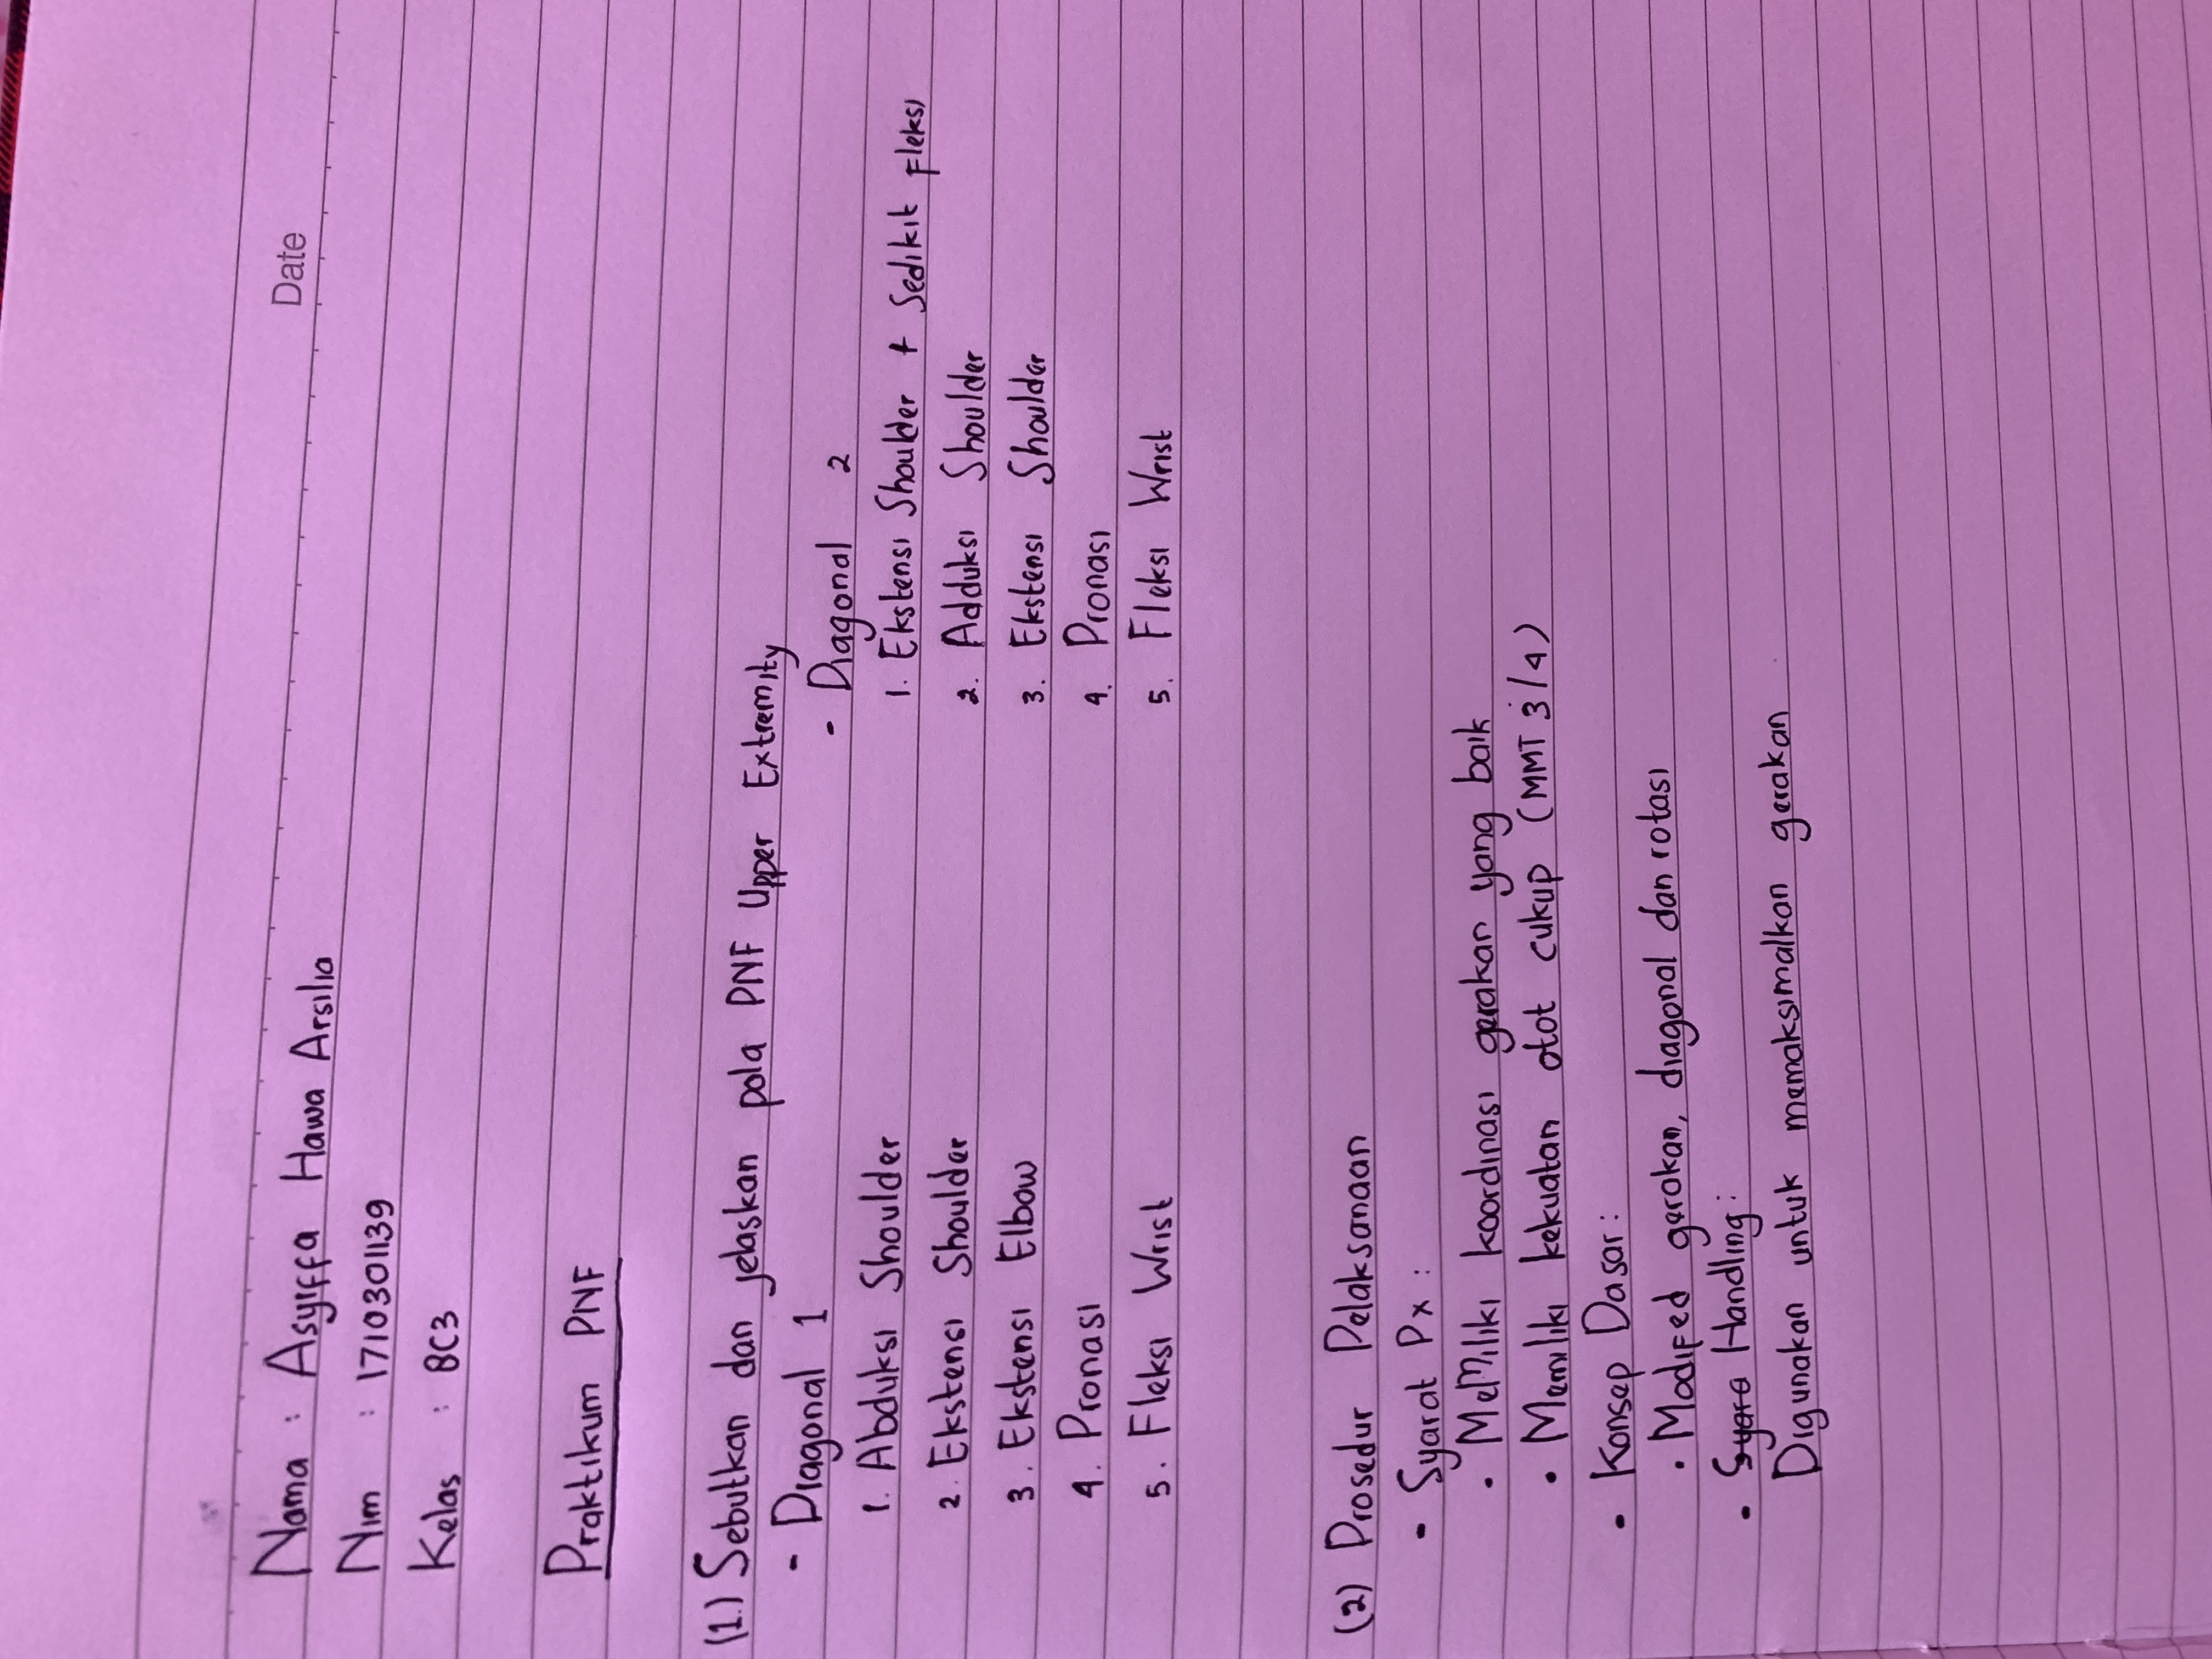 Date
Nama : Asyiffa Hawa Arsilia
Nim : 1710301139
Kelas : 8C3
Praktikum PNF
(1.) Sebutkan dan jelaskan pola PNF Upper Extremity
- Diagonal 1
1. Abduksi Shoulder
2. Ekstensi Shoulder
3. Ekstensi Elbow
4. Pronasi
5. Fleksi Wrist
- Diagonal 2
1. Ekstensi Shoulder + Sedikit fleksi
2. Adduksi Shoulder
3. Ekstensi Shoulder
4. Pronasi
5. Fleksi Wrist
(2) Prosedur Pelaksanaan
- Syarat Px :
• Memiliki koordinasi gerakan yang baik
• Memiliki kekuatan otot cukup (MMT 3/4)
- Konsep Dasar :
• Modifed gerakan, diagonal dan rotasi
- Syara Handling :
Digunakan untuk memaksimalkan gerakan